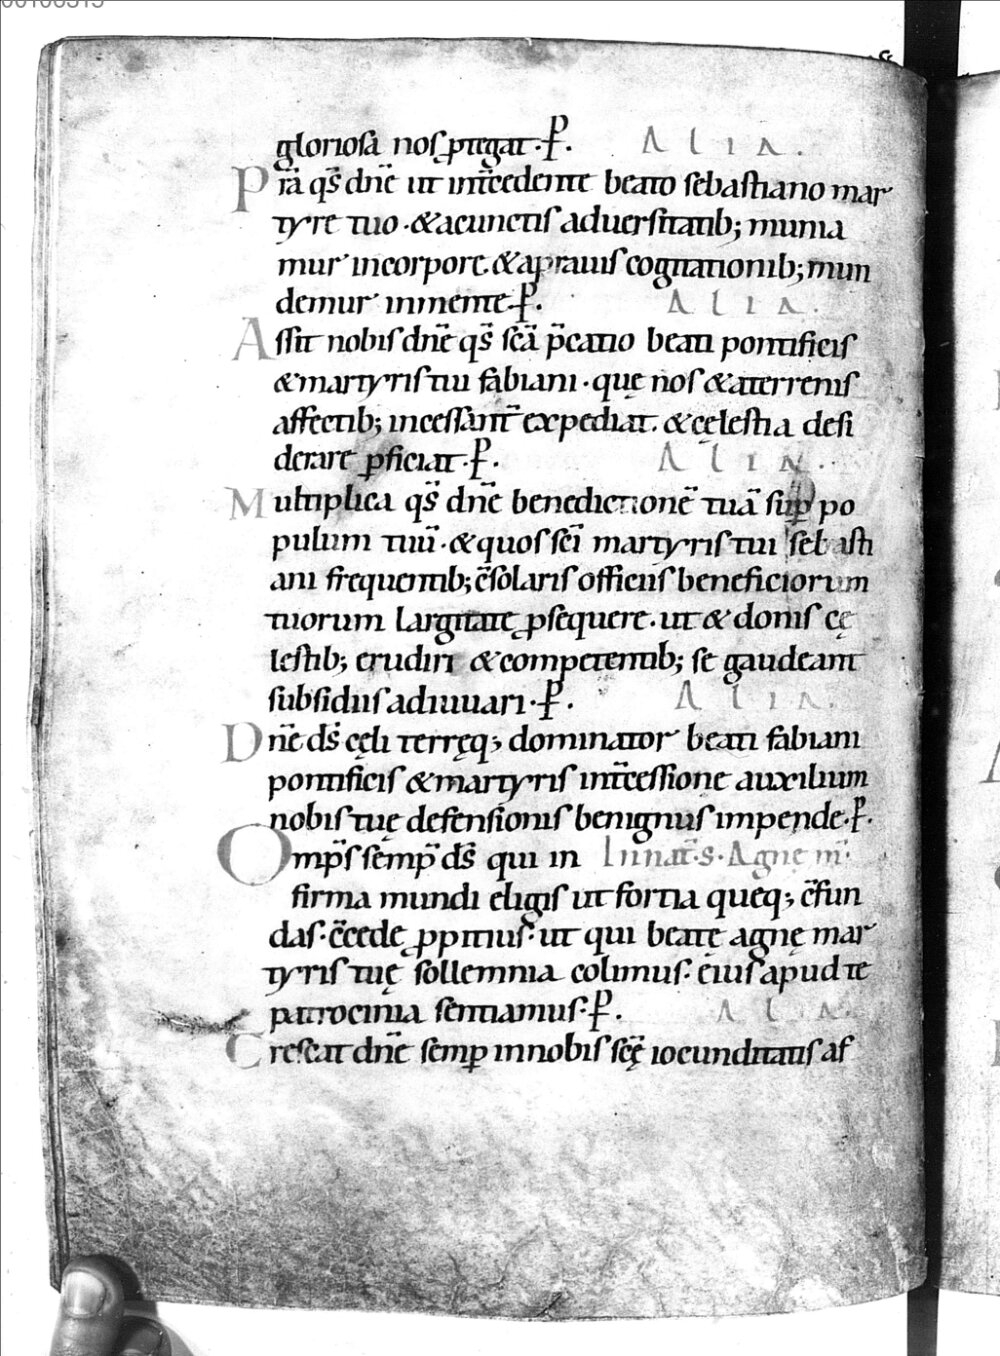 gloriosa nos ꝓtegat·P̵· ALIA.
Pr̄a qs̄ dn̄e ut int̄cedente beato sebastiano mar
tyre tuo·&a cunctis aduersitatib; munia
mur in corpore.&a prauis cogitationib; mun
demur in mente P̵· ALIA.
Assit nobis dn̄e qs̄ sc̄a p̄catio beati pontificis
& martyris tui fabiani· quę nos & a terrenis
affectib; incessant̄ expediat. & cęlestia desi
derare ꝓficiat·P̵· ALIA·
Multiplica qs̄ dn̄e benedictionē tuā sup̱ po
pulum tuū·& quos sc̄i martyris tui sebasti
ani frequentib; c̄solaris officiis beneficiorum
tuorum largitate ꝓsequere. ut & donis cę
lestib; erudiri & competentib; se gaudeant
subsidiis adiuuari·P̵· ALIA.
Dn̄e ds̄ cęli terręq; dominator beati fabiani
pontificis & martyris int̄cessione auxilium
nobis tuę defensionis benignus impende·P̵·
Omp̄s semp̄ ds̄ qui in In nat̄·S·Agne m̄·
firma mundi eligis ut fortia queq; c̄fun
das· c̄cede ꝓpitius· ut qui beatę agnę mar
tyris tuę sollemnia colimus· eius apud te
patrocinia sentiamus·P̵· ALIA.
Crescat dn̄e semp̱ in nobis sc̄ę iocunditatis af